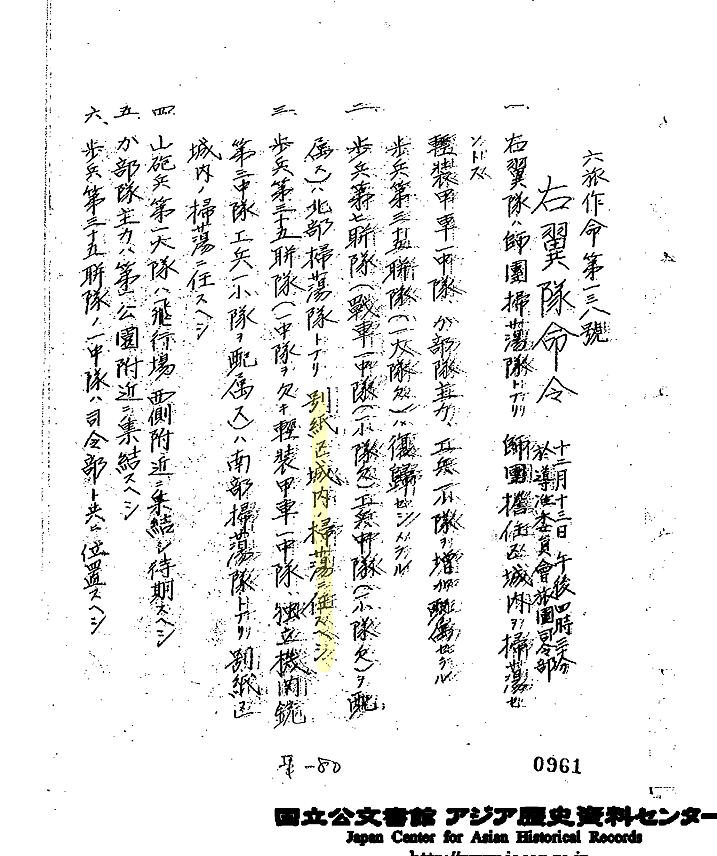 六旅作命第一三八號
右翼隊命令
十二月十三日午後四時三十分
於導淮委員會旅團司令部
一、右翼隊ハ師團掃蕩隊トナリ師團擔任區城内ヲ掃蕩セ
ントス
輕装甲車一中隊 が部隊主力、工兵一小隊ヲ増加配属セラル
歩兵第三十五聯隊(一大隊欠)ハ復歸セシメラル
二、歩兵第七聯隊(戰車一中隊(一小隊欠)工兵一中隊(一小隊欠)ヲ配
属ス)ハ北部掃蕩隊トナリ別紙區城内ノ掃蕩ニ任スヘシ
三、歩兵第三十五聯隊(一中隊ヲ欠キ輕装甲車一中隊、独立機関銃
第三中隊工兵一小隊ヲ配属ス)ハ南部掃蕩隊トナリ別紙區
城内ノ掃蕩ニ任スヘシ
四、山砲兵第一大隊ハ飛行場西側附近ニ集結シ待期スヘシ
五、が部隊主力ハ第一公園附近ニ集結スヘシ
六、歩兵第三十五聯隊ノ一中隊ハ司令部ト共ニ位置スヘシ
-80
0961
国立公文書館 アジア歴史資料センター
Japan Center for Asian Historical Records